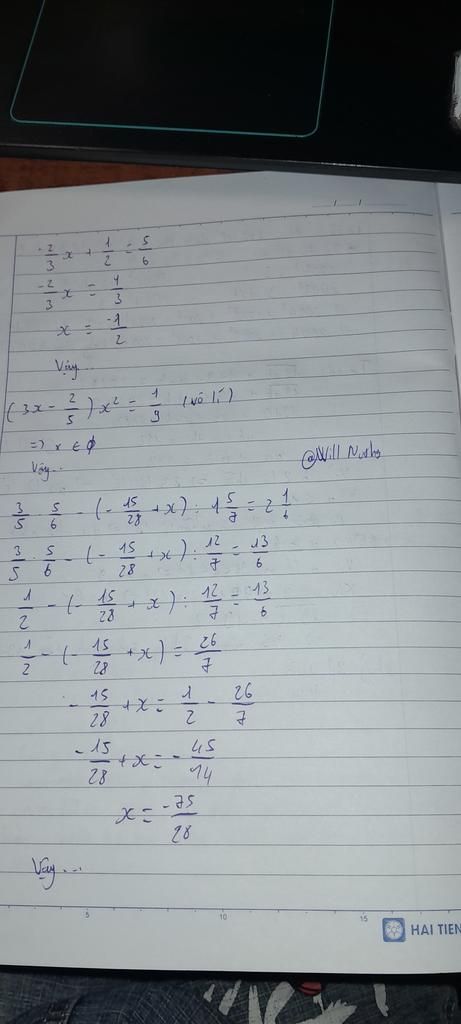 -2/3 x + 1/2 = 5/6
-2/3 x = 1/3
x = -1/2
Vậy...
(3x - 2/5) x² = 1/9 (vô lí)
=> x ∈ ϕ
Vậy...
@Will
3/5 . 5/6 - (-15/28 + x) : 1 5/7 = 2 1/6
3/5 . 5/6 - (-15/28 + x) : 12/7 = 13/6
1/2 - (-15/28 + x) : 12/7 = 13/6
1/2 - (-15/28 + x) = 26/7
-15/28 + x = 1/2 - 26/7
-15/28 + x = -45/14
x = -75/28
Vậy...
5 10 15
HAI TIEN